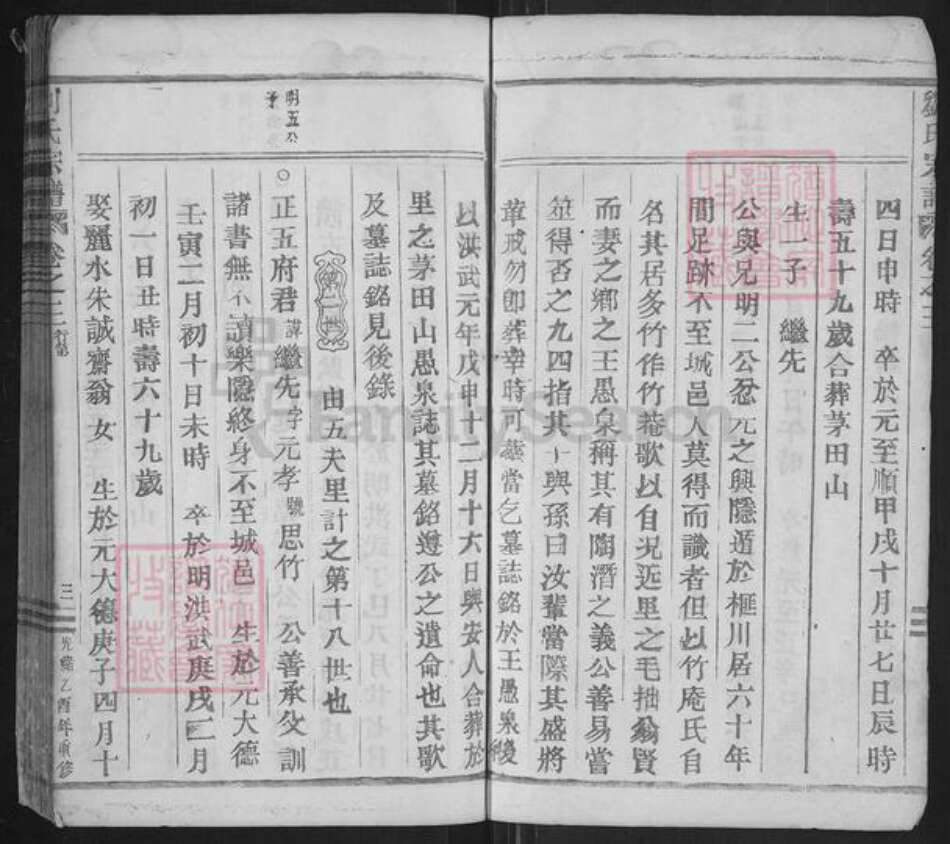 劉氏宗譜 卷之三
四日申時 卒於元至順甲戌十月廿七日辰時
壽五十九歲合葬茅田山
生一子 繼先
公與兄明二公忿元之興隱遁於榧川居六十年
間足跡不至城邑人莫得而識者但以竹庵氏自
名其居多竹作竹菴歌以自况近里之毛拙翁賢
而妻之鄉之王愚泉稱其有陶潛之義公善易嘗
筮得否之九四指其 與孫曰汝輩當際其盛將
革戒勿卽葬幸時可葬當乞墓誌銘於王愚泉後
以洪武元年戊申十二月十六日與安人合葬於
里之茅田山愚泉誌其墓銘遵公之遺命也其歌
及墓誌銘見後錄
第二世 由五夫里計之第十八世也
明五公子
○正五府君 諱繼先字元孝號思竹 公善承父訓
諸書無不讀樂隱終身不至城邑 生於元大德
壬寅二月初十日未時 卒於明洪武庚戌二月
初一日丑時壽六十九歲
娶麗水朱誠齋翁女 生於元大德庚子四月十
劉氏宗譜 卷之三 行第
三
光緒乙酉年重修
FamilySearch